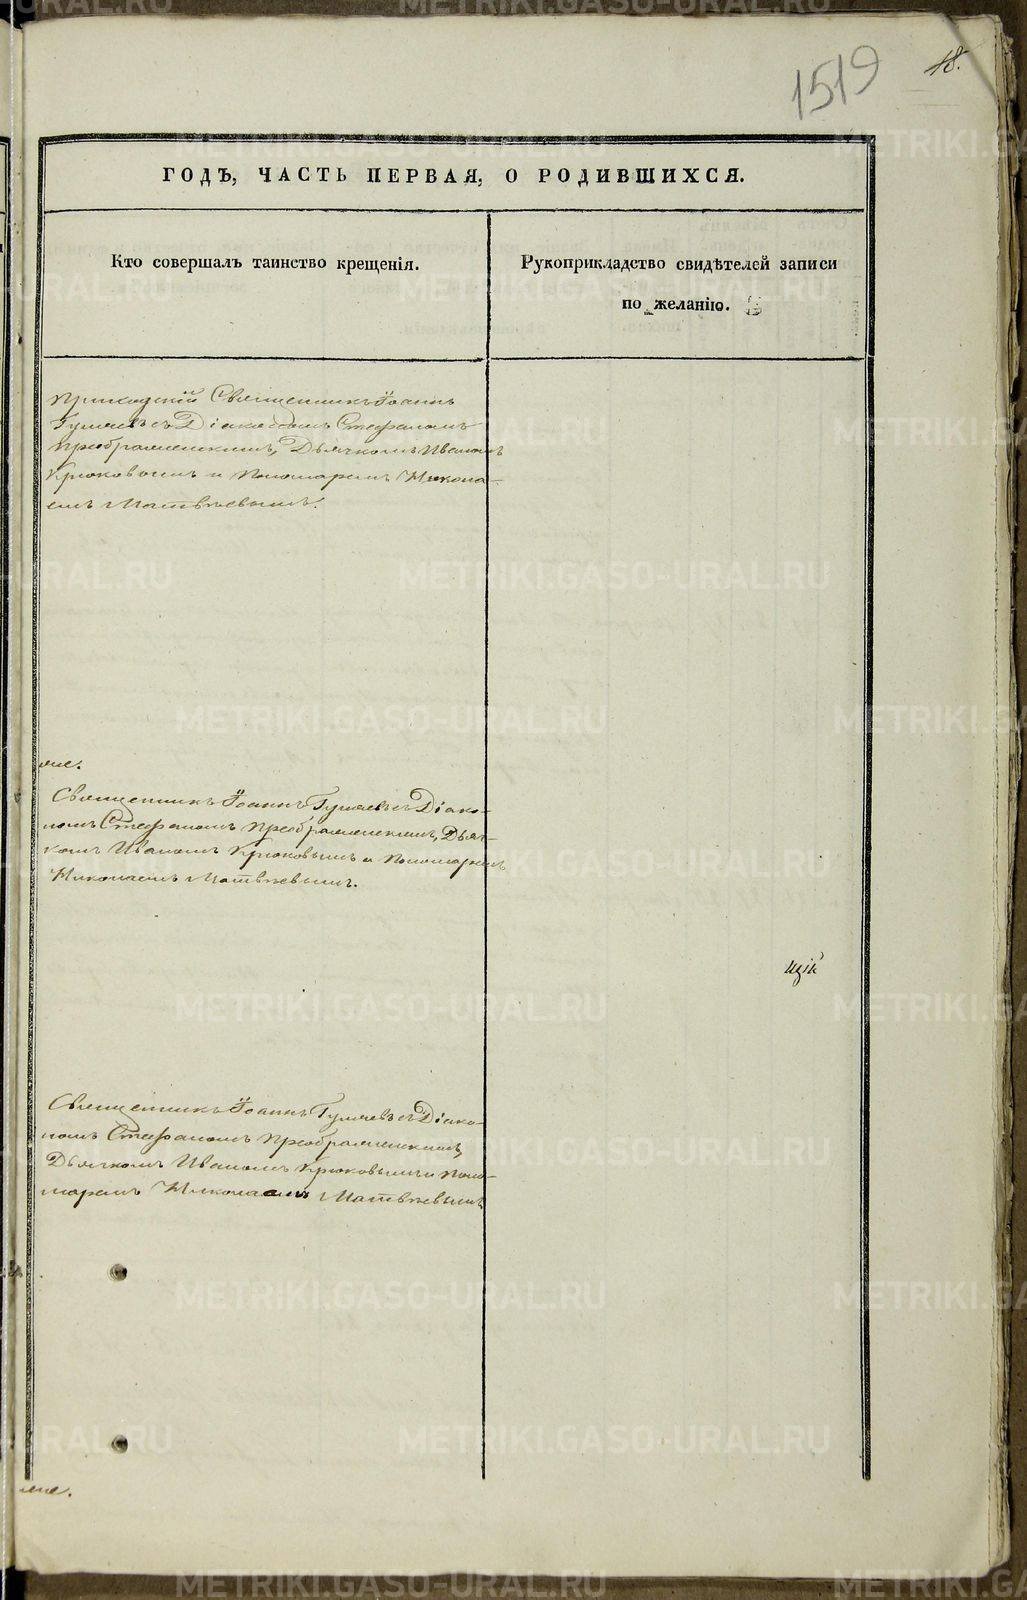 1519
18.
ГОДЪ, ЧАСТЬ ПЕРВАЯ, О РОДИВШИХСЯ.
Кто совершалъ таинство крещенія.
Рукоприкладство свидѣтелей записи
по желанію.
Приходскій Священникъ Іоаннъ
Гуляевъ съ Діакономъ Стефаномъ
Преображенскимъ, Дьячкомъ Иваномъ
Крюковымъ и Пономаремъ Никола-
емъ Матвѣевымъ.
Священникъ Іоаннъ Гуляевъ съ Діако-
номъ Стефаномъ Преображенскимъ, Дьяч-
комъ Иваномъ Крюковымъ и Пономаремъ
Николаемъ Матвѣевымъ.
щій
Священникъ Іоаннъ Гуляевъ съ Діако-
номъ Стефаномъ Преображенскимъ,
Дьячкомъ Иваномъ Крюковымъ и Поно-
маремъ Николаемъ Матвѣевымъ
METRIKI.GASO-URAL.RU